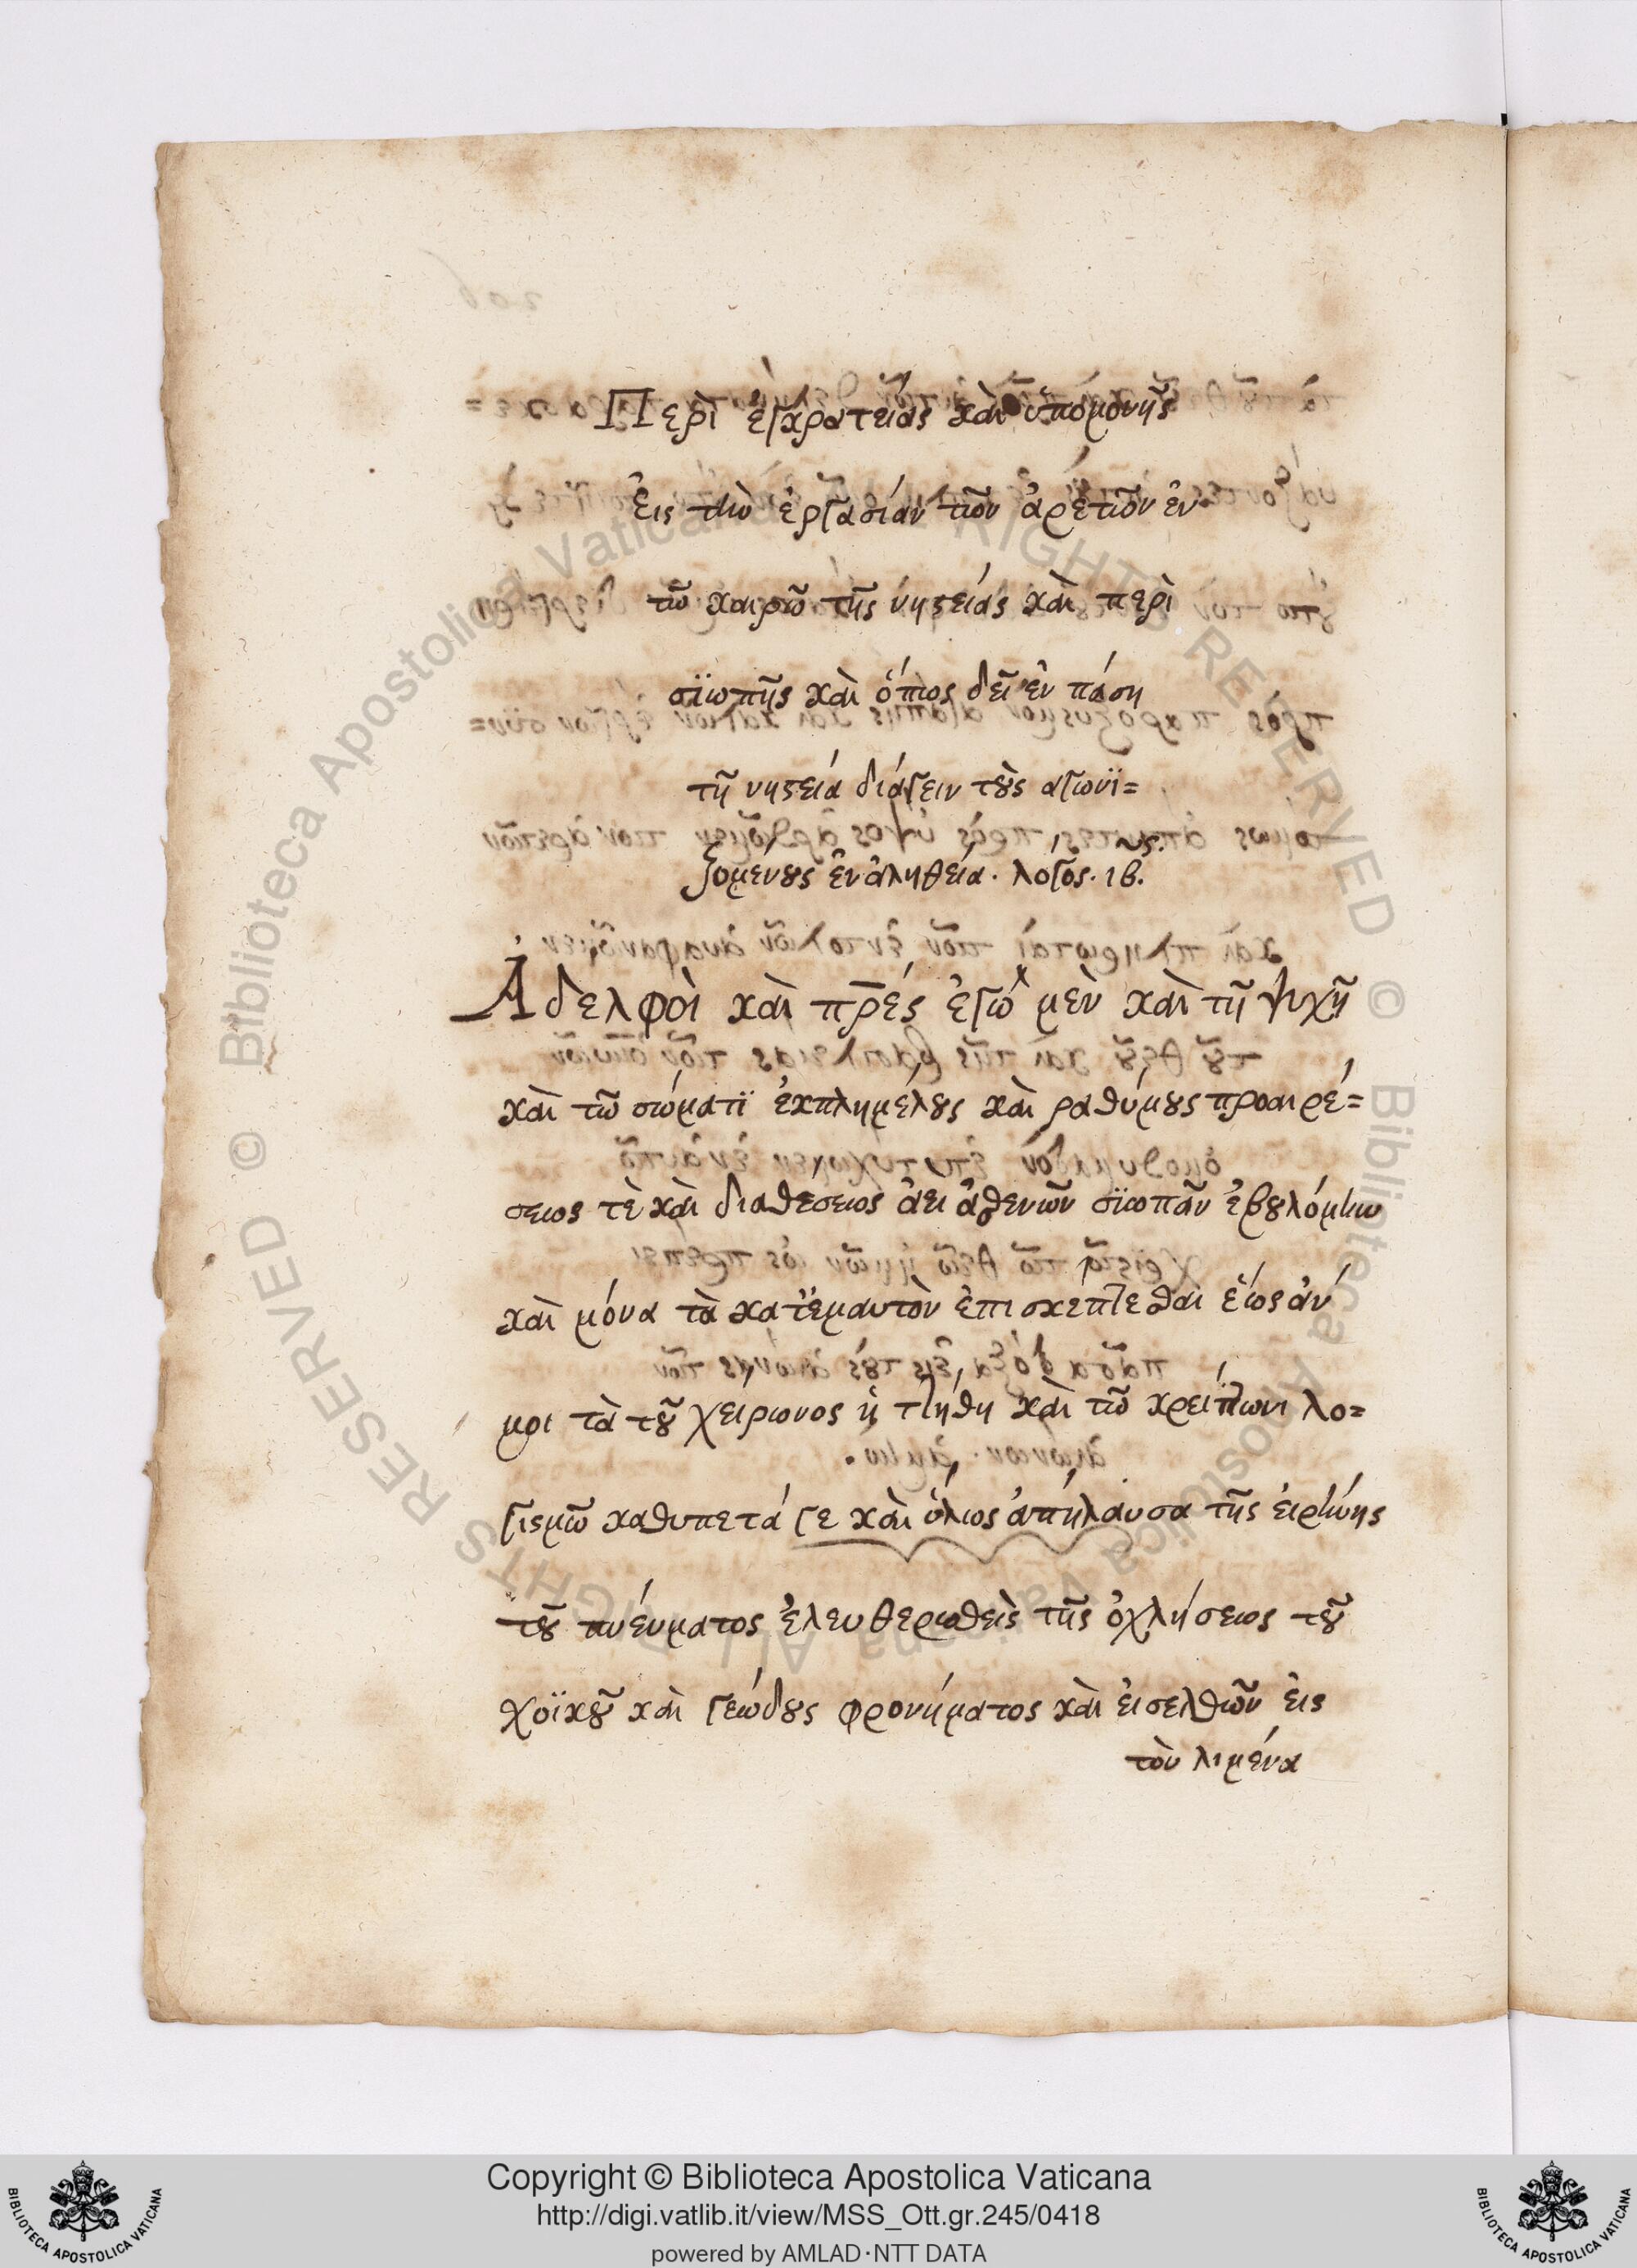 Περὶ ἐγκρατείας καὶ ὑπομονῆς
Εἰς τὴν ἐργασίαν τῶν ἀρετῶν ἐν
τῷ καιρῷ τῆς νηστείας καὶ περὶ
σϊωπῆς καὶ ὅπως δεῖ ἐν πάση
τῆ νηστεία διάγειν τοὺς ἀγωνϊ=
ζομένους ἐν ἀληθεία. λόγος. ιβ.
Ἀδελφοὶ καὶ πρ̅ές ἐγὼ μὲν καὶ τῆ ψυχῆ
καὶ τῶ σώματϊ ἐκπλημέλους καὶ ραθύμους προαιρέ=
σεως τὲ καὶ διαθέσεως ἀει ἀσθενῶν σϊωπᾶν ἐβουλόμην
καὶ μόνα τὰ κατ' ἐμαυτὸν ἐπισκέπτεσθαι ἕως ἄν
μοι τὰ τοῦ χείρωνος ἡττήθη καὶ τῶ κρείττωνι λο=
γισμῶ καθυπετάγε καὶ ὅλως ἀπήλαυσα τῆς εἰρήνης
τοῦ πνέυματος ἐλευθερωθεὶς τῆς ὀχλήσεως τοῦ
χοϊκοῦ καὶ γεώδους φρονήματος καὶ εἰσελθῶν εἰς
τὸν λιμένα
Copyright © Biblioteca Apostolica Vaticana
http://digi.vatlib.it/view/MSS_Ott.gr.245/0418
powered by AMLAD·NTT DATA
BIBLIOTECA APOSTOLICA VATICANA
BIBLIOTECA APOSTOLICA VATICANA
© Biblioteca Apostolica Vaticana ALL RIGHTS RESERVED
© Biblioteca Apostolica Vaticana ALL RIGHTS RESERVED